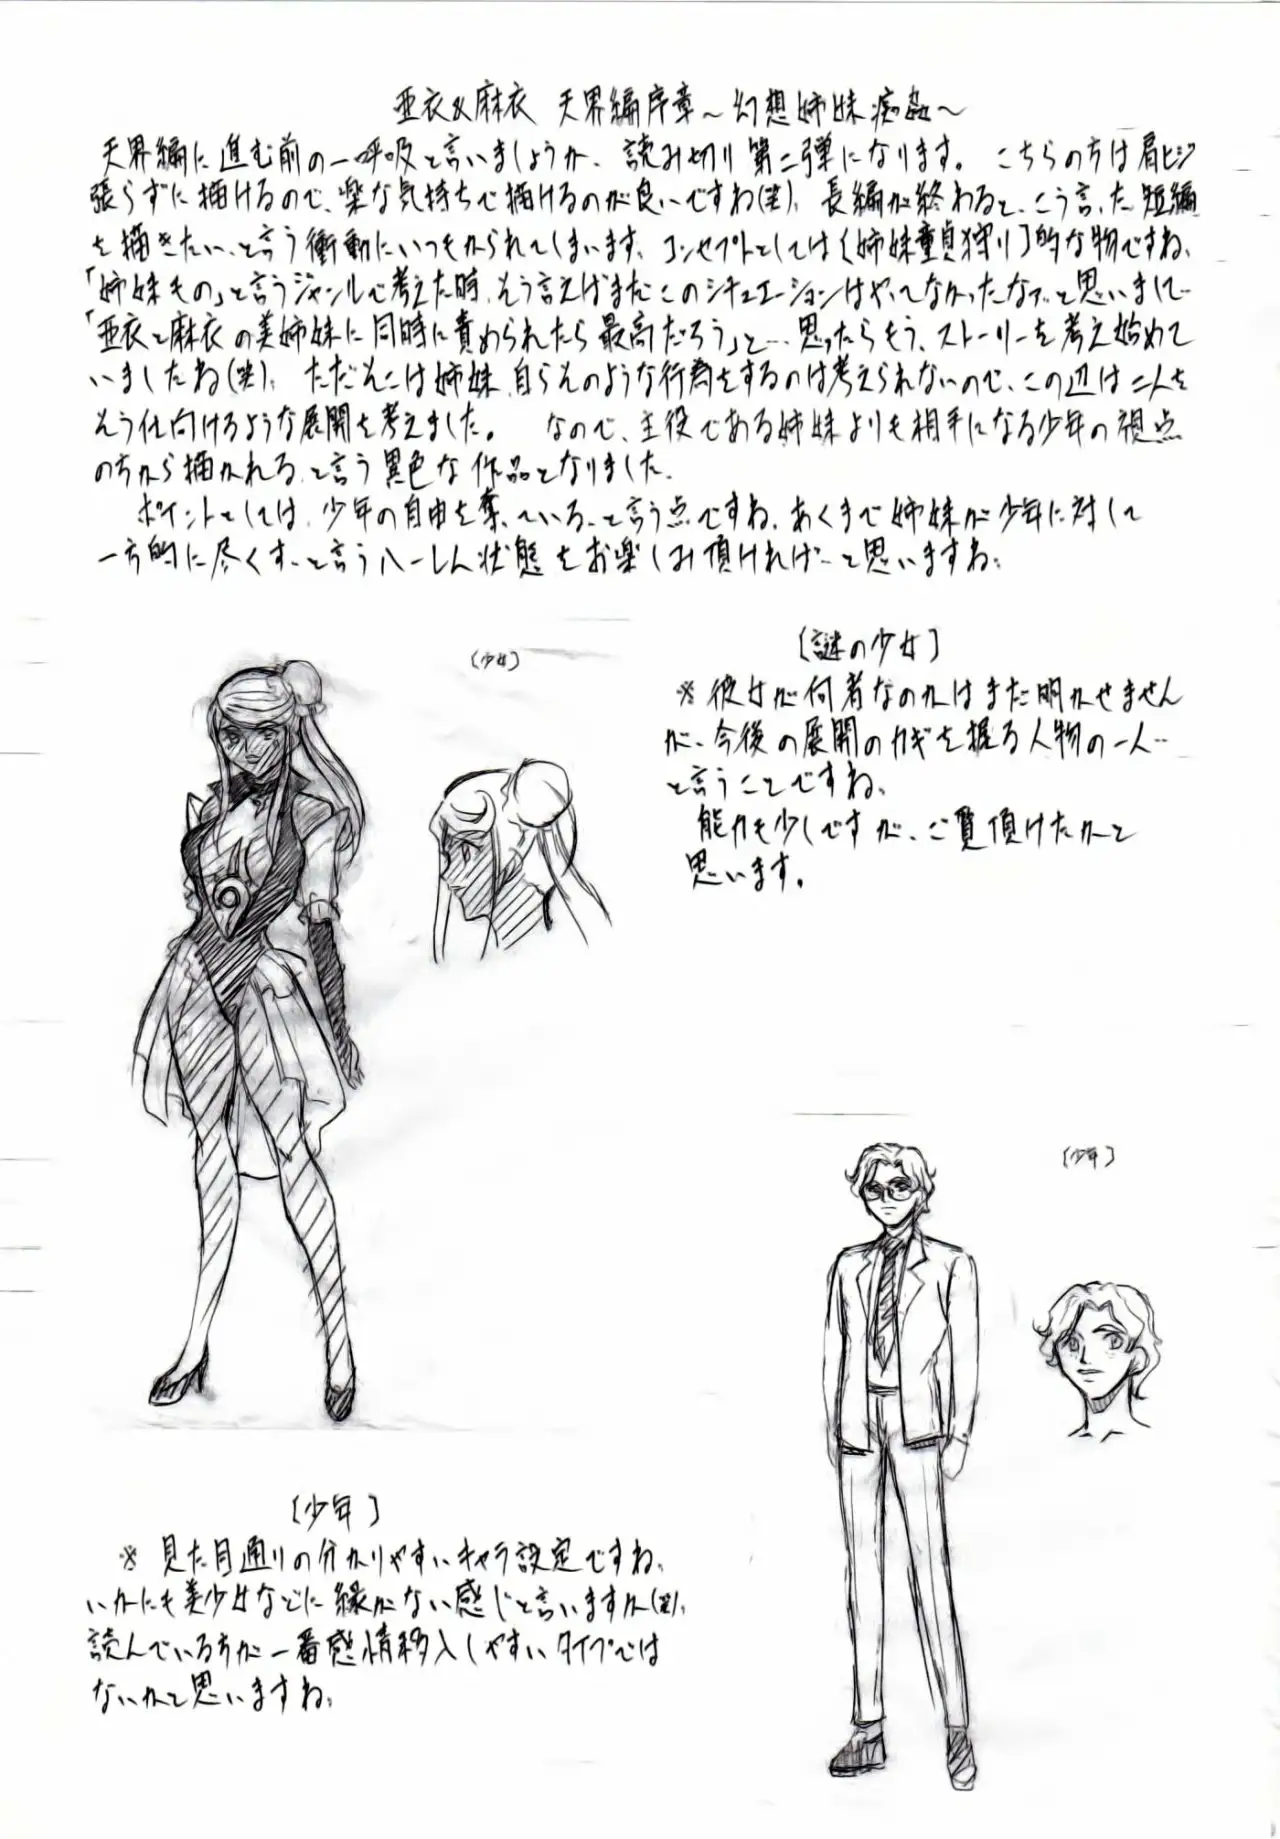 亜衣&麻衣 天界編序章～幻想姉妹痴姦～
天界編に進む前の一呼吸と言いましょうか、読み切り第二弾になります。こちらの方は肩ヒジ
張らずに描けるので、楽な気持ちで描けるのが良いですね(笑)。長編が終わると、こう言った短編
を描きたい、と言う衝動にいつもかられてしまいます。コンセプトとしては〔姉妹童貞狩り〕的な物ですね。
「姉妹もの」と言うジャンルで考えた時、そう言えばまだこのシチュエーションはやってなかったなァ…と思いまして…
「亜衣と麻衣の美姉妹に同時に責められたら最高だろう」と…思ったらもう、ストーリーを考え始めて
いましたね(笑)。ただそこは姉妹、自らそのような行為をするのは考えられないので、この辺は二人を
そう仕向けるような展開を考えました。 なので、主役である姉妹よりも相手になる少年の視点
の方から描かれる、と言う異色な作品となりました。
ポイントとしては、少年の自由を奪っている、と言う点ですね。あくまで姉妹が少年に対して
一方的に尽くす、と言うハーレム状態をお楽しみ頂ければ…と思いますね。
〔少女〕
〔謎の少女〕
※彼女が何者なのかはまだ明かせません
が、今後の展開のカギを握る人物の一人…
と言うことですね。
能力も少しですが、ご覧頂けたかと
思います。
〔少年〕
〔少年〕
※見た目通りの分かりやすいキャラ設定ですね。
いかにも美少女などに縁がない感じと言いますか(笑)。
読んでいる方が一番感情移入しやすいタイプでは
ないかと思いますね。